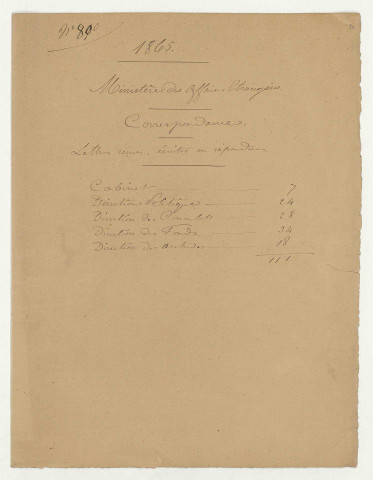 N° 89
1865.
Ministère des Affaires Etrangères
Correspondance.
Lettres reçues, écrites en répondu
Cabinet 7
Direction Politique 24
Direction des Consulats 28
Direction des Fonds 34
Direction des Archives 18
111